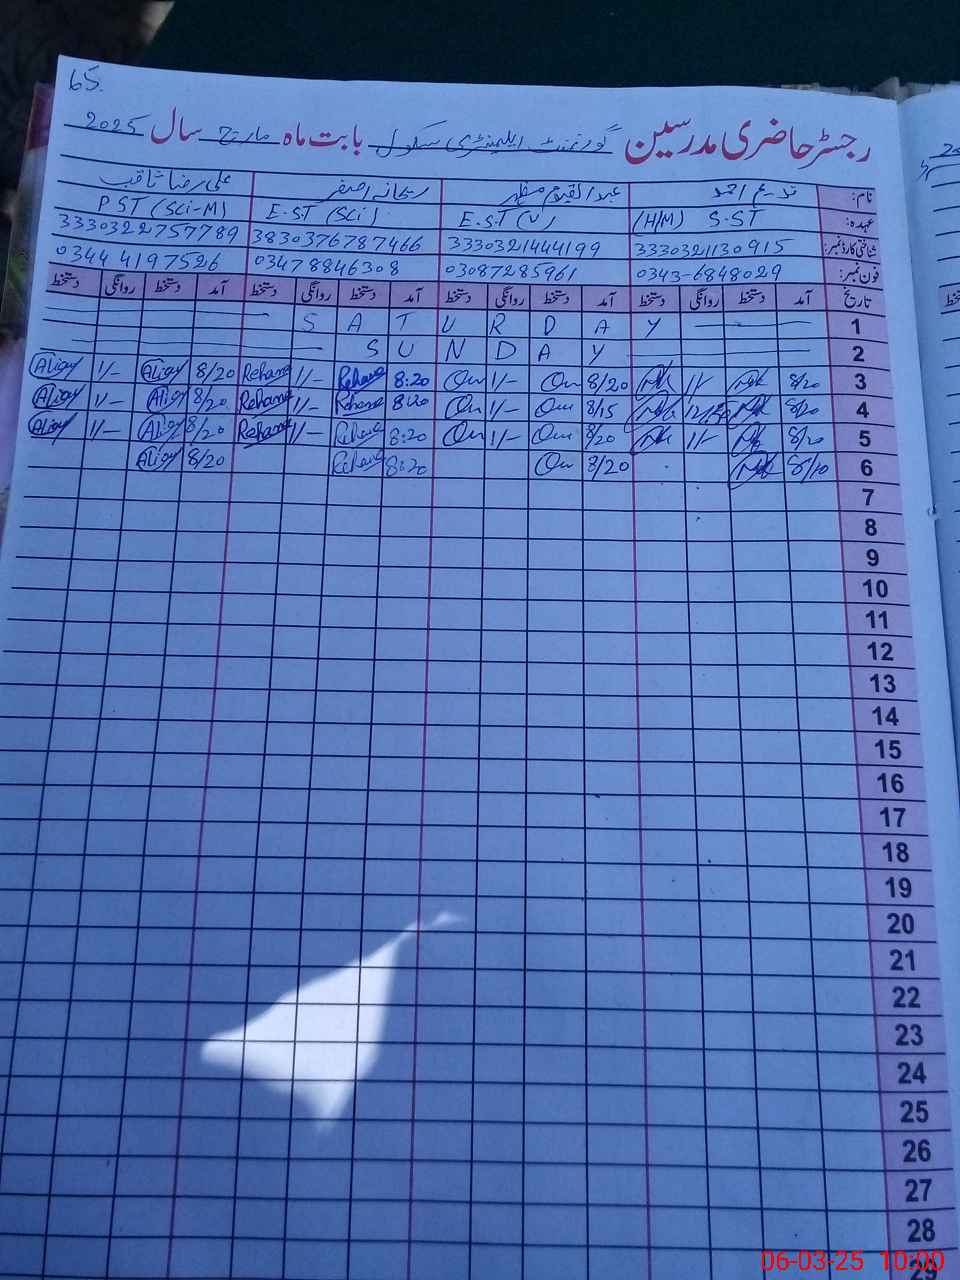 65.
رجسٹر حاضری مدرسین گورنمنٹ ایلیمنٹری سکول بابت ماہ مارچ سال 2025
نام: عبدالقیوم مظہر ریحانہ اصغر علی رضا ثاقب
عہدہ: S.ST (H/M) E.S.T (U) E.S.T (Sci) P ST (Sci-M)
شناختی کارڈ نمبر: 3330321130915 3330321444199 3830376787466 3330322757789
فون نمبر: 0343-6848029 03087285961 03478846308 03444197526
تاریخ آمد دستخط روانگی دستخط آمد دستخط روانگی دستخط آمد دستخط روانگی دستخط آمد دستخط روانگی دستخط
1 S A T U R D A Y
2 S U N D A Y
3 8/20 1/- 8/20 1/- 8:20 Rehana 1/- Rehana 8/20 1/-
4 8/20 8/15 1/- 8:20 Rehana 1/- Rehana 8/20 1/-
5 8/20 1/- 8/20 1/- 8:20 Rehana 1/- Rehana 8/20 1/-
6 8/10 8/20 8:20 Rehana 8/20
7
8
9
10
11
12
13
14
15
16
17
18
19
20
21
22
23
24
25
26
27
28
29
06-03-25 10:00